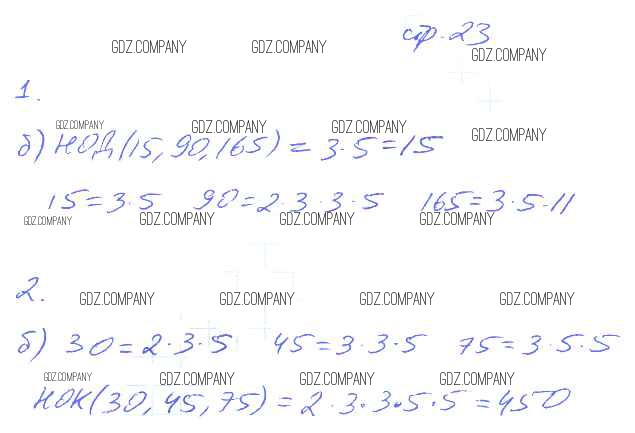 стр. 23
GDZ.COMPANY GDZ.COMPANY GDZ.COMPANY
1.
GDZ.COMPANY GDZ.COMPANY GDZ.COMPANY GDZ.COMPANY
б) НОД(15, 90, 165) = 3·5=15
15=3·5 90=2·3·3·5 165=3·5·11
GDZ.COMPANY GDZ.COMPANY GDZ.COMPANY GDZ.COMPANY
2.
GDZ.COMPANY GDZ.COMPANY GDZ.COMPANY GDZ.COMPANY
б) 30=2·3·5 45=3·3·5 75=3·5·5
GDZ.COMPANY GDZ.COMPANY GDZ.COMPANY GDZ.COMPANY
НОК(30, 45, 75) = 2·3·3·5·5=450